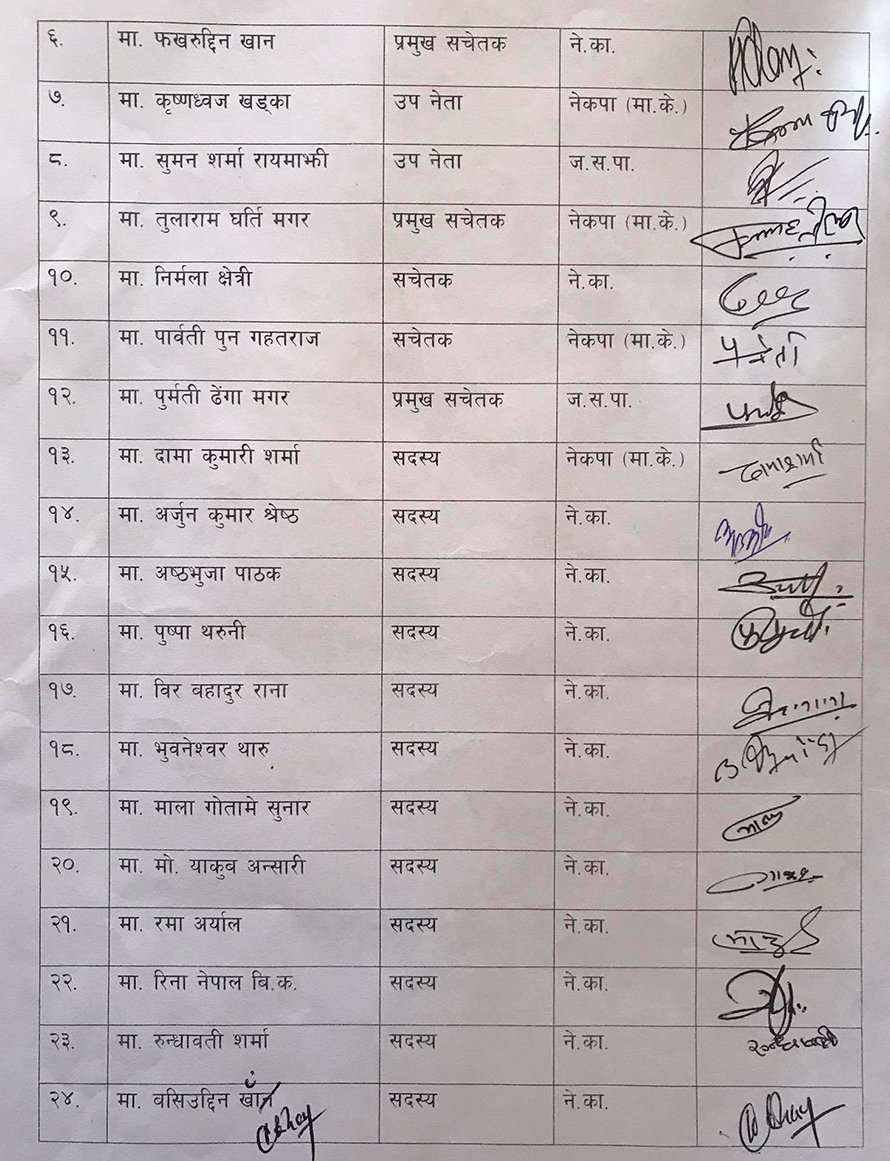 ६. मा. फखरुद्दिन खान प्रमुख सचेतक ने.का.
७. मा. कृष्णध्वज खड्का उप नेता नेकपा (मा.के.)
८. मा. सुमन शर्मा रायमाझी उप नेता ज.स.पा.
९. मा. तुलाराम घर्ति मगर प्रमुख सचेतक नेकपा (मा.के.)
१०. मा. निर्मला क्षेत्री सचेतक ने.का.
११. मा. पार्वती पुन गहतराज सचेतक नेकपा (मा.के.)
१२. मा. पुर्मती ढेंगा मगर प्रमुख सचेतक ज.स.पा.
१३. मा. दामा कुमारी शर्मा सदस्य नेकपा (मा.के.)
१४. मा. अर्जुन कुमार श्रेष्ठ सदस्य ने.का.
१५. मा. अष्ठभुजा पाठक सदस्य ने.का.
१६. मा. पुष्पा थरुनी सदस्य ने.का.
१७. मा. विर बहादुर राना सदस्य ने.का.
१८. मा. भुवनेश्वर थारु सदस्य ने.का.
१९. मा. माला गोतामे सुनार सदस्य ने.का.
२०. मा. मो. याकुव अन्सारी सदस्य ने.का.
२१. मा. रमा अर्याल सदस्य ने.का.
२२. मा. रिना नेपाल बि.क. सदस्य ने.का.
२३. मा. रुन्धावती शर्मा सदस्य ने.का.
२४. मा. वसिउद्दिन खाँन सदस्य ने.का.